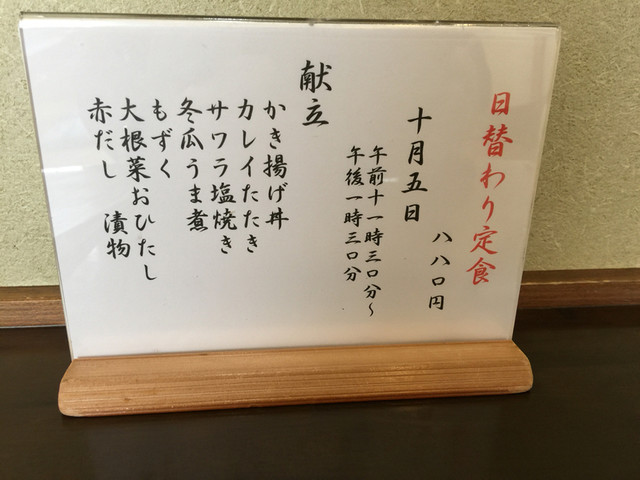 日替わり定食
八八〇円
十月五日
午前十一時三〇分〜
午後一時三〇分
献立
かき揚げ丼
カレイたたき
サワラ塩焼き
冬瓜うま煮
もずく
大根菜おひたし
赤だし 漬物